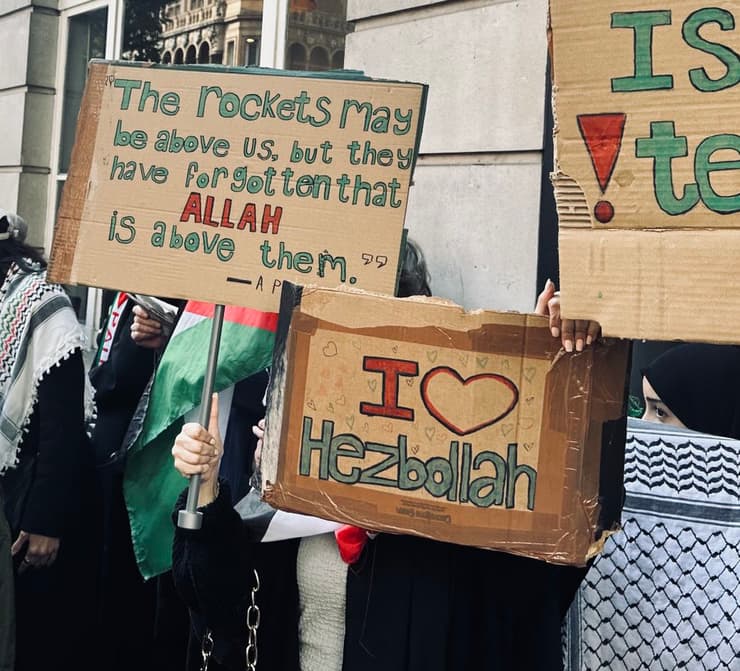 "The rockets may
be above us, but they
have forgotten that
ALLAH
is above them."
— A P
I ♡
Hezbollah
IS
! te